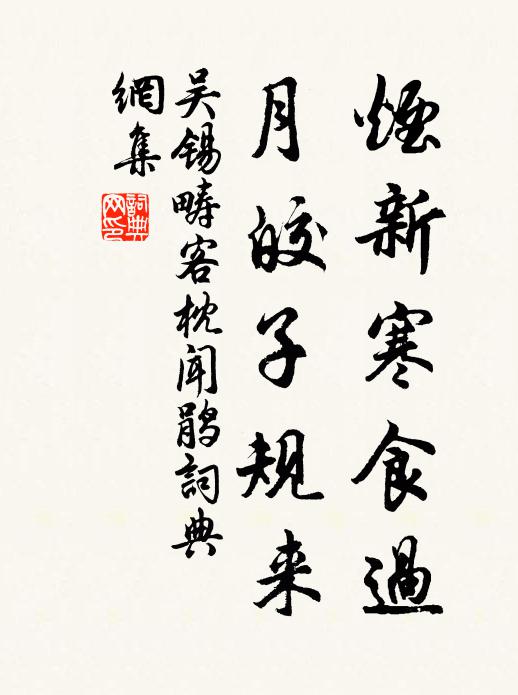 煙新寒食過
月皎子規来
吴锡畴客枕闻鹃詞典
網集
詞典
网印